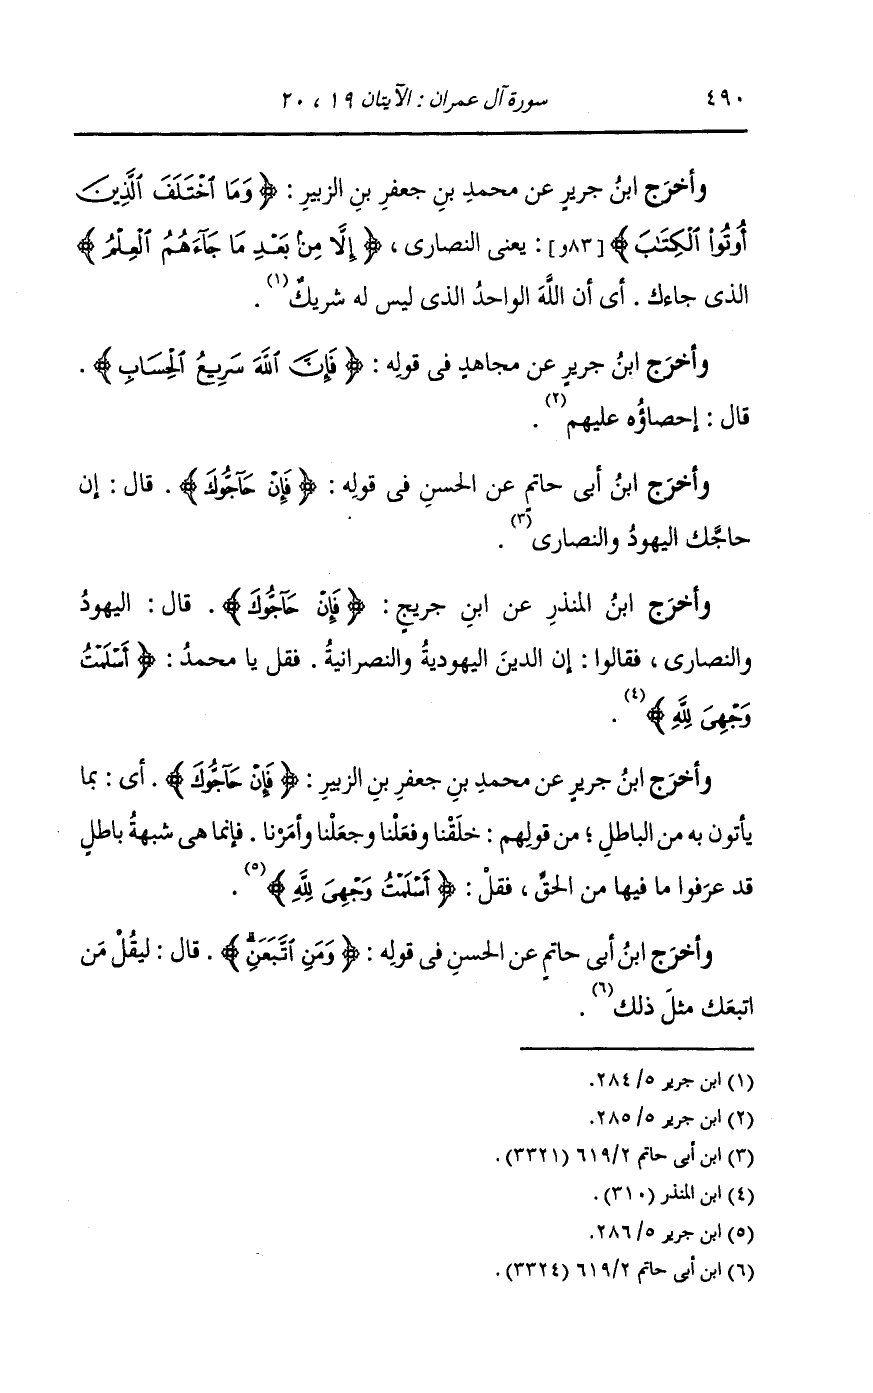 ٤٩٠ سورة آل عمران : الآيتان ١٩ ، ٢٠
وأخرَج ابنُ جريرٍ عن محمدِ بنِ جعفرِ بنِ الزبيرِ : ﴿ وَمَا ٱخْتَلَفَ ٱلَّذِينَ
أُوتُوا۟ ٱلْكِتَٰبَ ﴾ [٨٣و] : يعنى النصارى ، ﴿ إِلَّا مِنۢ بَعْدِ مَا جَآءَهُمُ ٱلْعِلْمُ ﴾
الذى جاءك . أى أن اللَّهَ الواحدُ الذى ليس له شريكٌ(١) .
وأخرَج ابنُ جريرٍ عن مجاهدٍ فى قولِه : ﴿ فَإِنَّ ٱللَّهَ سَرِيعُ ٱلْحِسَابِ ﴾ .
قال : إحصاؤُه عليهم(٢) .
وأخرَج ابنُ أبى حاتمٍ عن الحسنِ فى قولِه : ﴿ فَإِنْ حَآجُّوكَ ﴾ . قال : إن
حاجَّك اليهودُ والنصارى(٣) .
وأخرَج ابنُ المنذرِ عن ابنِ جريجٍ : ﴿ فَإِنْ حَآجُّوكَ ﴾ . قال : اليهودُ
والنصارى ، فقالوا : إن الدينَ اليهوديةُ والنصرانيةُ . فقل يا محمدُ : ﴿ أَسْلَمْتُ
وَجْهِىَ لِلَّهِ ﴾(٤) .
وأخرَج ابنُ جريرٍ عن محمدِ بنِ جعفرِ بنِ الزبيرِ : ﴿ فَإِنْ حَآجُّوكَ ﴾ . أى : بما
يأتون به من الباطلِ ؛ من قولِهم : خلَقْنا وفعَلْنا وجعَلْنا وأمَرْنا . فإنما هى شبهةُ باطلٍ
قد عرَفوا ما فيها من الحقِّ ، فقلْ : ﴿ أَسْلَمْتُ وَجْهِىَ لِلَّهِ ﴾(٥) .
وأخرَج ابنُ أبى حاتمٍ عن الحسنِ فى قولِه : ﴿ وَمَنِ ٱتَّبَعَنِۗ ﴾ . قال : ليقُلْ مَن
اتبعَك مثلَ ذلك(٦) .
(١) ابن جرير ٥/ ٢٨٤.
(٢) ابن جرير ٥/ ٢٨٥.
(٣) ابن أبى حاتم ٦١٩/٢ (٣٣٢١).
(٤) ابن المنذر (٣١٠).
(٥) ابن جرير ٥/ ٢٨٦.
(٦) ابن أبى حاتم ٦١٩/٢ (٣٣٢٤).